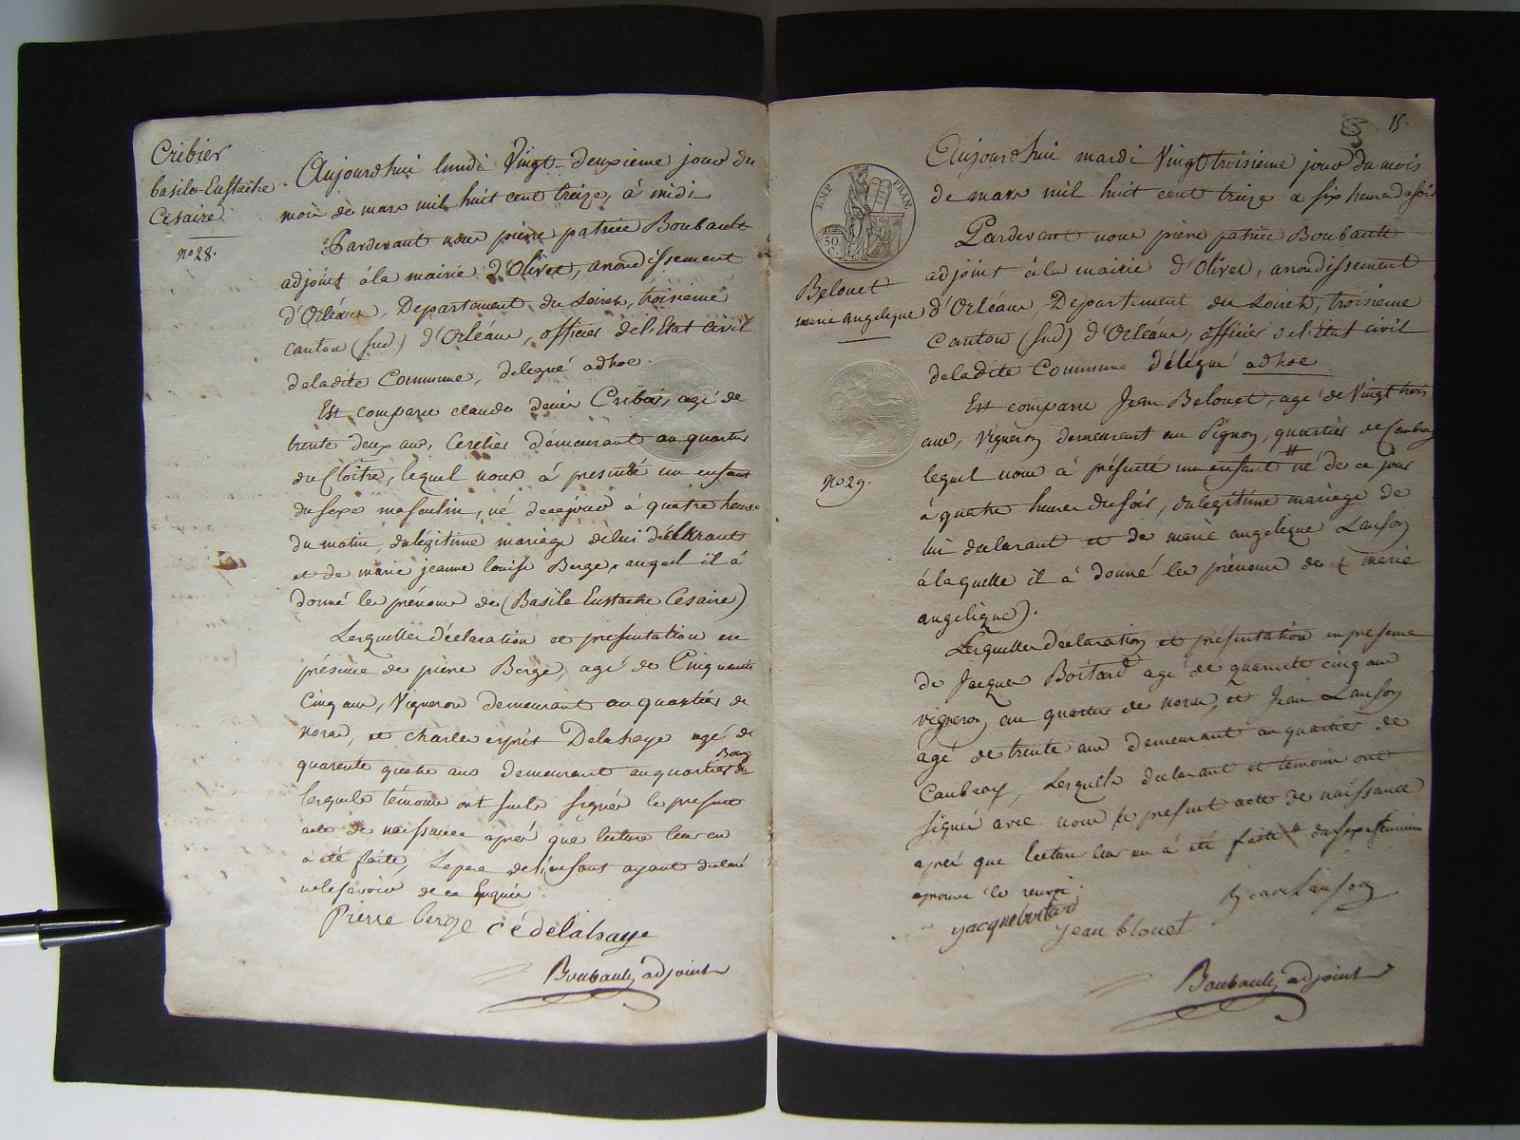 Cribier
basile Eustache
Cesaire
nº 28.
Aujourd'hui lundi Vingt-deuxieme jour du
mois de mars mil huit cent treize, à midi
Pardevant nous pierre patrice Boubault
adjoint à la mairie d'Olivet, arrondissement
d'Orléans, Departement du Loiret, troisieme
canton (sud) d'Orléans, officier de l'état civil
deladite Commune, delegué adhoc.
Est comparu claude denis Cribier, agé de
trente deux ans, Cerclier demeurant au quartier
du Cloître, lequel nous à presenté un enfant
du sexe masculin, né decejour à quatre heures
du matin, du legitime mariage de lui déclarant
et de marie jeanne louise Berge, auquel il à
donné les prénoms de (Basile Eustache Cesaire)
Lesquelles déclaration et presentation en
présence de pierre Berge, agé de Cinquante
Cinq ans, Vigneron demeurant au quartier de
, et charles esprit Delahaye agé de
quarante quatre ans demeurant au quartier du Bourg
lesquels témoins ont seuls signés le present
acte de naissance après que lecture leur en
à été faite, Le pere de l'enfant ayant declaré
ne le savoir de ce Enquis.
Pierre berge cé délahaye
Boubault, adjoint
15.
EMP FRAN
50
C.
Belouet
marie angelique
nº 29.
Aujourd'hui mardi Vingt troisieme jour du mois
de mars mil huit cent treize a six heures du soir
Pardevant nous pierre patrice Boubault
adjoint à la mairie d'Olivet, arrondissement
d'Orléans Departement du Loiret, troisieme
Canton (sud) d'Orléans, officier de l'état civil
deladite Commune délégué adhoc
Est comparu Jean Belouet, agé de Vingt trois
ans, Vigneron demeurant au Pignon, quartier de Caubray
lequel nous à présenté un enfant # né de ce jour
à quatre heures du soir, du legitime mariage de
lui declarant et de marie angelique Lanson
à laquelle il à donné les prénoms de (marie
angelique).
Lesquelles declaration et présentation en presence
de Jacques Boitard agé de quarante cinq ans
vigneron au quartier de, et Jean Lanson
agé de trente ans demeurant au quartier de
Caubray, Lesquels declarant et temoins ont
signé avec nous le present acte de naissance
après que lecture leur en à été faite # du sexe feminin
aprouvé le renvoi.
jacque boitard jean Lanson
jean blouet
Boubault, adjoint